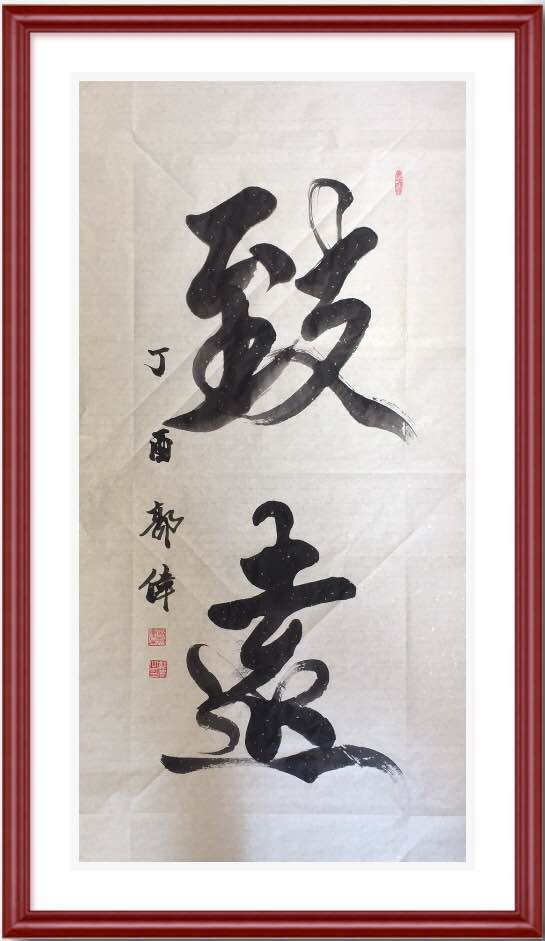 致遠
丁酉郭偉